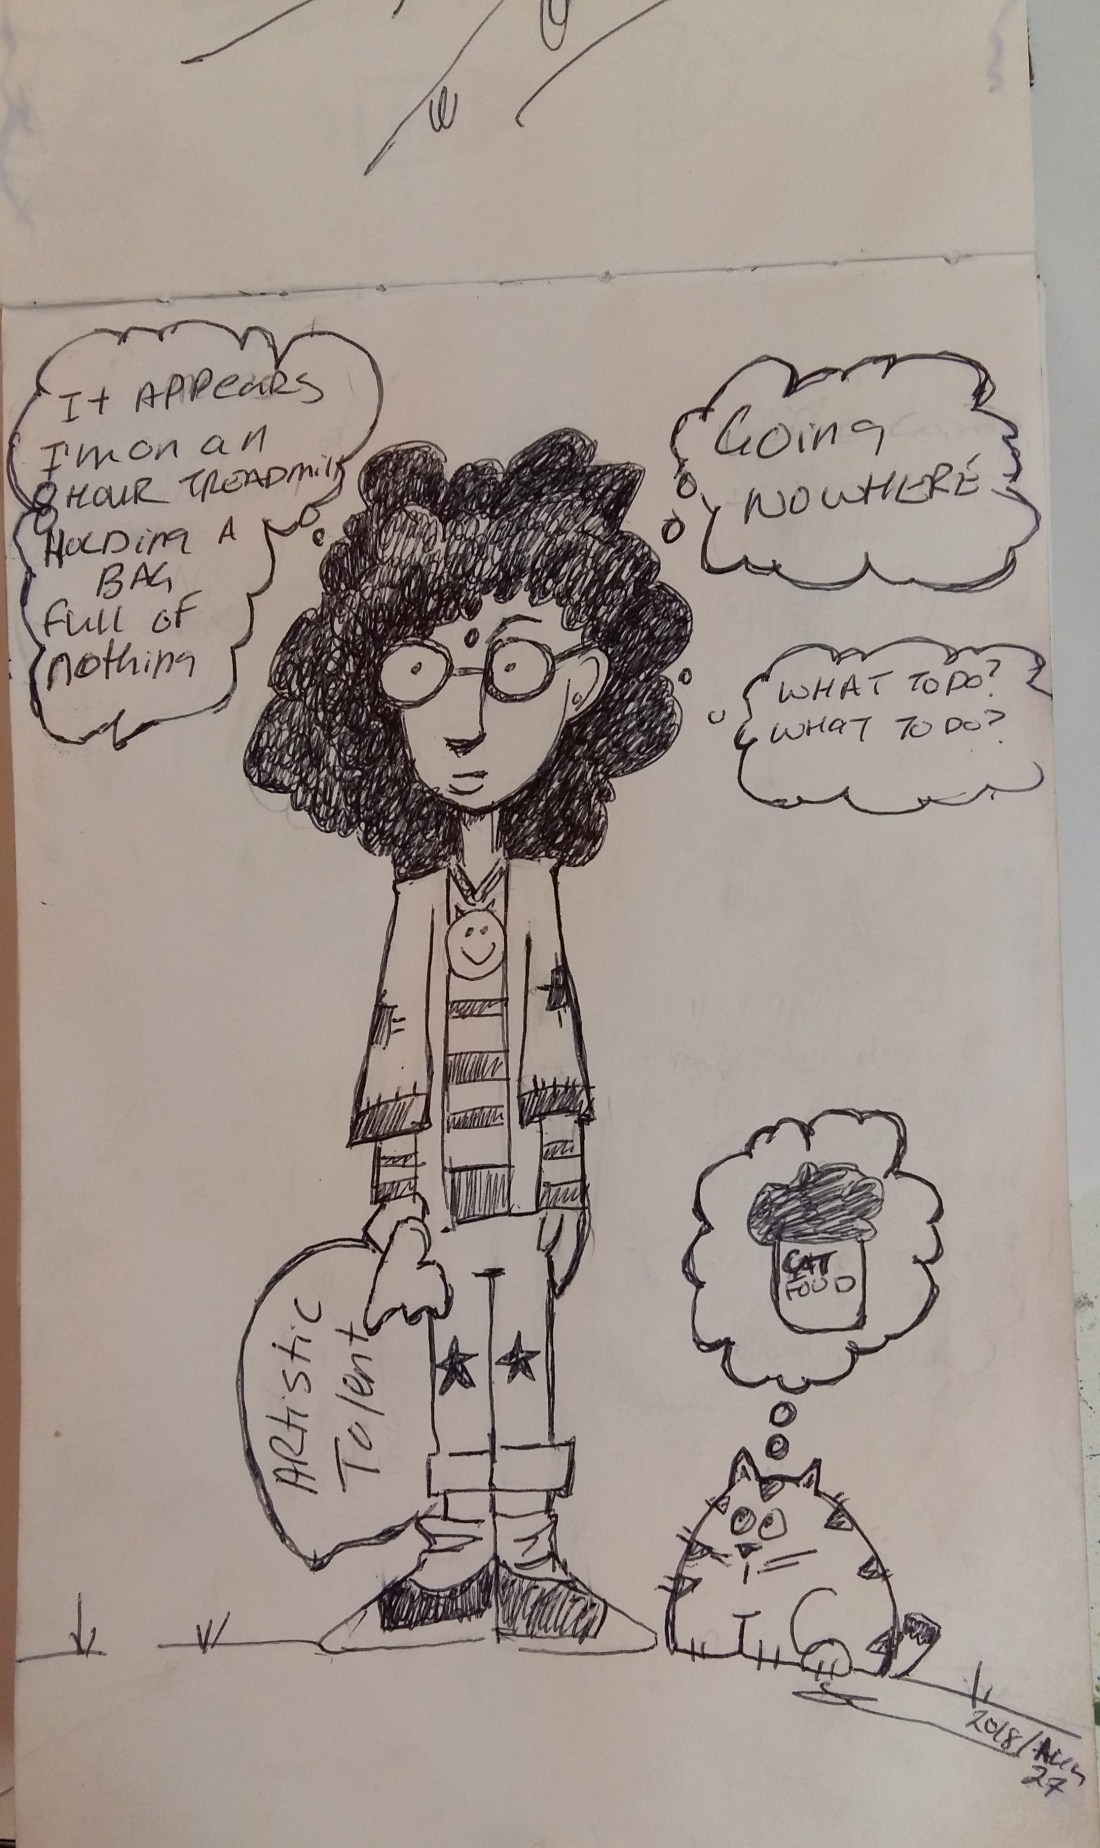 It APPears
I'm on an
8 HOUR TREADMill
HOLDing A
BAG
full of
nothing
Going
NOWHERE
WHAT TO DO?
WHaT TO DO?
CAT
FOOD
ARtistic
Talent
2018/Aug
27